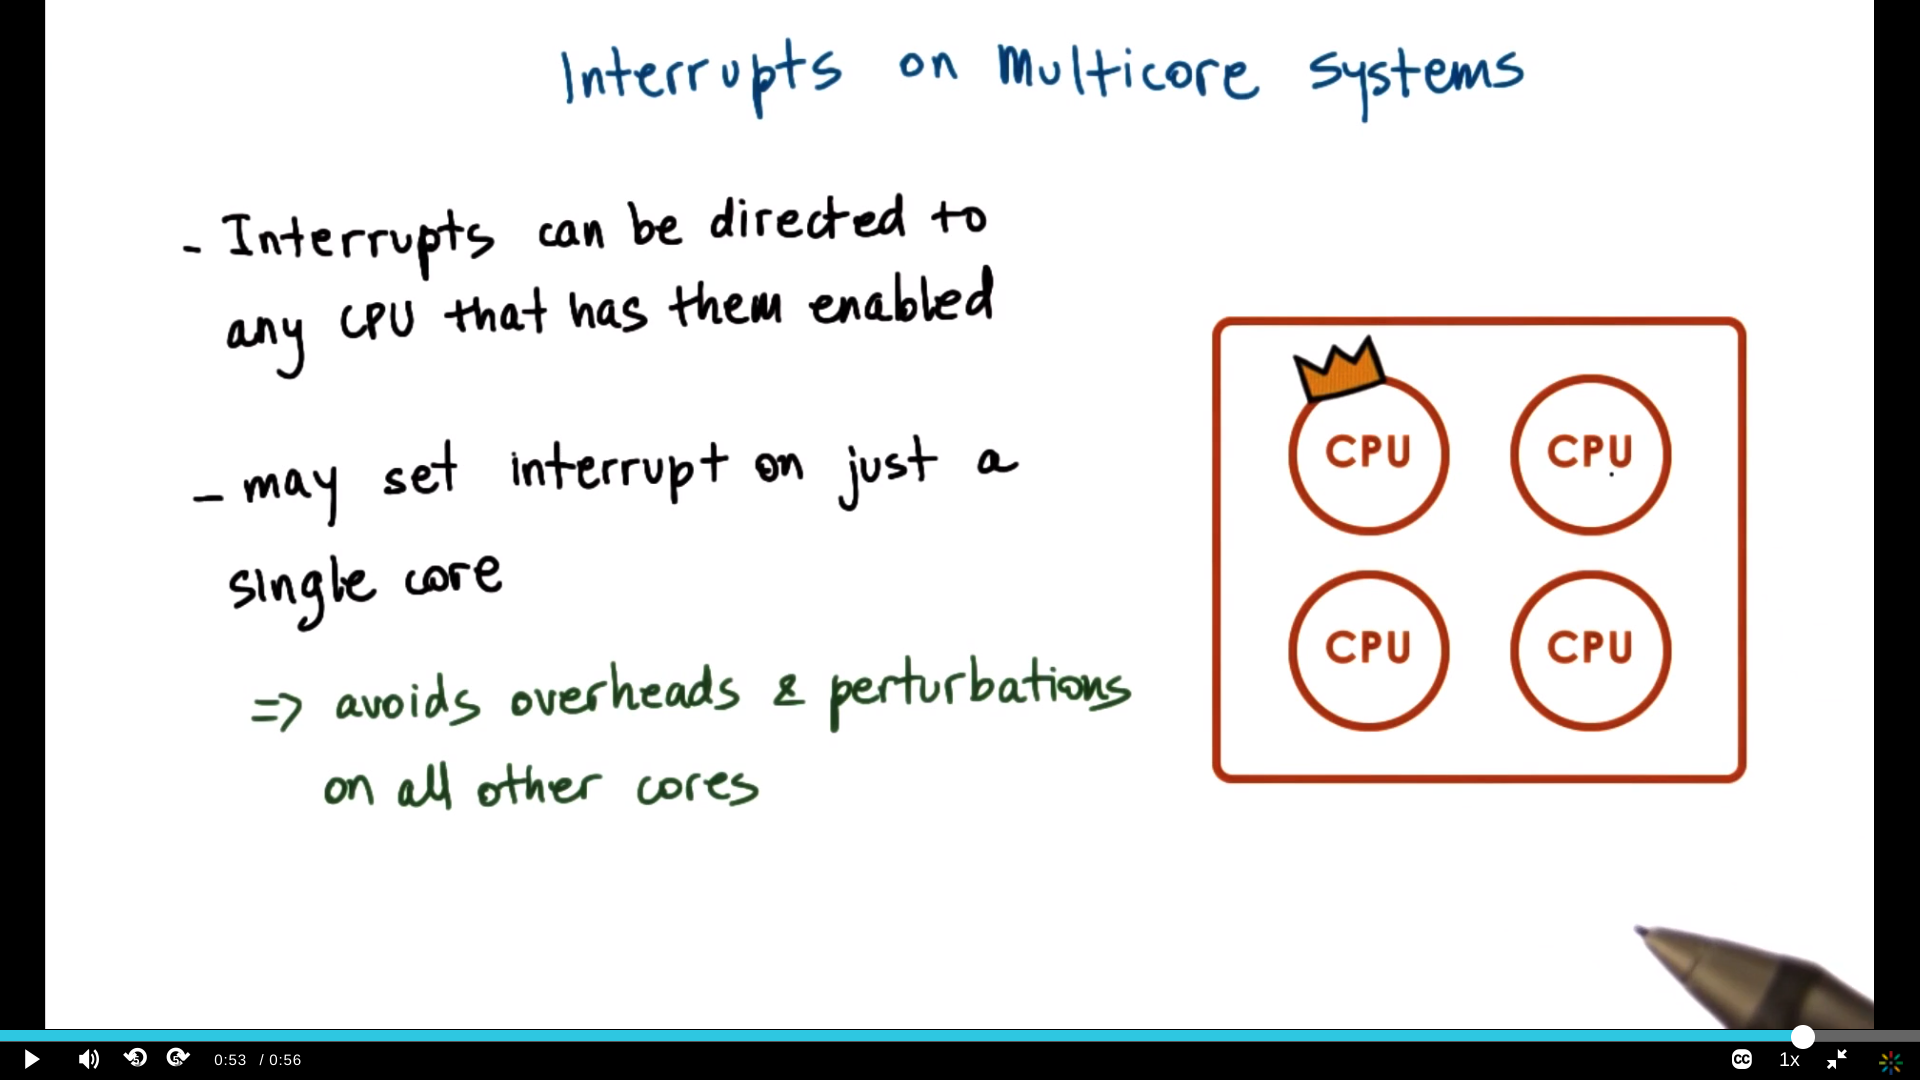 Interrupts on Multicore Systems
- Interrupts can be directed to
any CPU that has them enabled
- may set interrupt on just a
single core
=> avoids overheads & perturbations
on all other cores
CPU CPU
CPU CPU
5 5 0:53 / 0:56 CC 1x